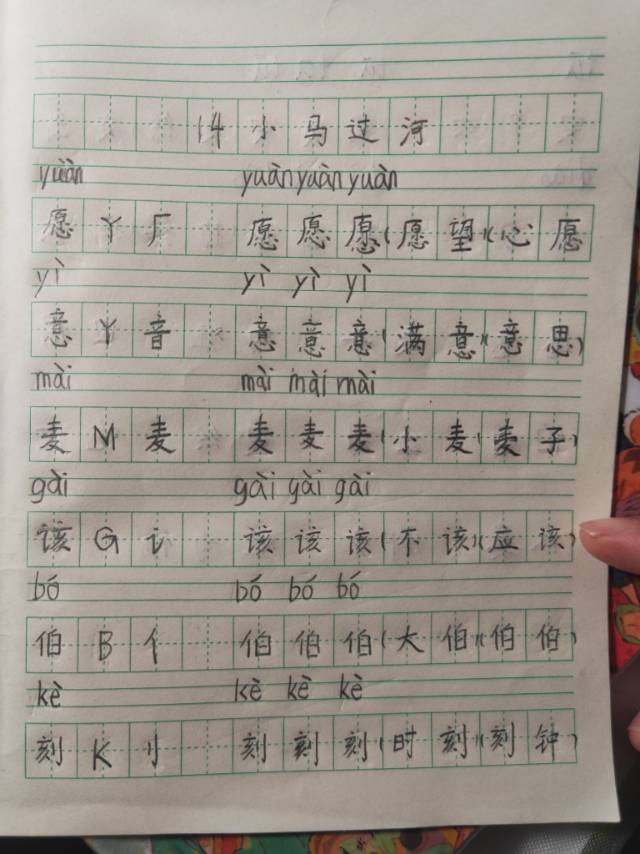 14小马过河
yuàn yuàn yuàn yuàn
愿 丫 厂 愿 愿 愿(愿望)(心愿
yì yì yì yì
意 丫 音 意 意 意(满意)(意思)
mài mài mài mài
麦 M 麦 麦 麦 麦(小麦)(麦子)
gāi gāi gāi gāi
该 G 讠 该 该 该(不该)(应该)
bó bó bó bó
伯 B 亻 伯 伯 伯(大伯)(伯伯)
kè kè kè kè
刻 K 刂 刻 刻 刻(时刻)(刻钟)